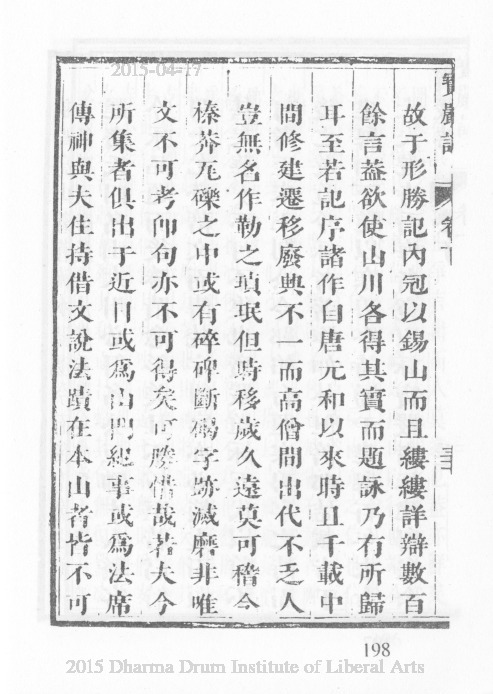 2015-04-17
寶嚴記
卷下
三十
故于形勝記內冠以錫山而且縷縷詳辯數百
餘言葢欲使山川各得其實而題詠乃有所歸
耳至若記序諸作自唐元和以來時且千載中
間修建遷移廢興不一而高僧間出代不乏人
豈無名作勒之瑱珉但時移歲久遠莫可稽今
榛莽瓦礫之中或有碎碑斷碣字跡滅磨非唯
文不可考卽句亦不可得矣可勝惜哉若夫今
所集者俱出于近日或爲山門紀事或爲法席
傳神與夫住持借文說法蹟在本山者皆不可
198
2015 Dharma Drum Institute of Liberal Arts